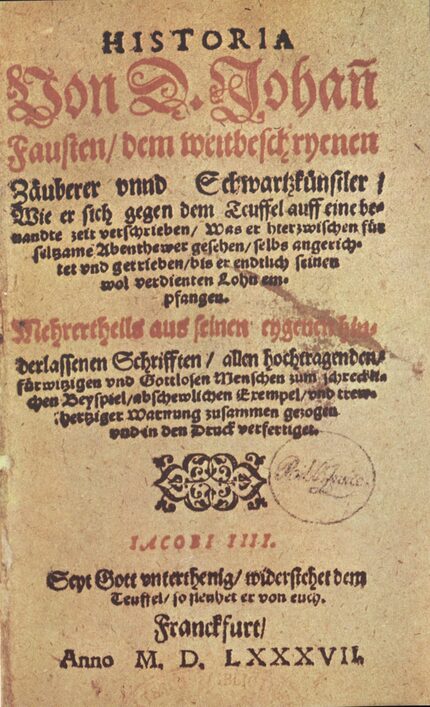 HISTORIA
Von D. Johañ
Fausten/ dem weitbeschryenen
Zäuberer vnnd Schwartzkünstler/
Wie er sich gegen dem Teuffel auff eine be-
nandte zeit verschrieben/ Was er hierzwischen für
seltzame Abenthewer gesehen/ selbs angerich-
tet vnd getrieben/ biß er endtlich seinen
wol verdienten Lohn em-
pfangen.
Mehrertheils aus seinen eygenen hin-
derlassenen Schrifften/ allen hochtragenden/
fürwitzigen vnd Gottlosen Menschen zum schreckli-
chen Beyspiel/ abschewlichen Exempel/ vnd trew-
hertziger Warnung zusammen gezogen
vnd in den Druck verfertiget.
IACOBI IIII.
Seyt Gott vnterthenig/ widerstehet dem
Teuffel/ so fleuhet er von euch.
Franckfurt/
Anno M. D. LXXXVII.